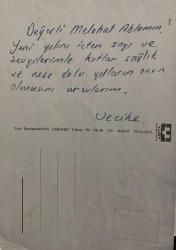 Değerli Melahat Ablamın,
Yeni yılını içten saygı ve
sevgilerimle kutlar sağlık
ve neşe dolu yılların onun
olmasını arzularım.
Vecihe